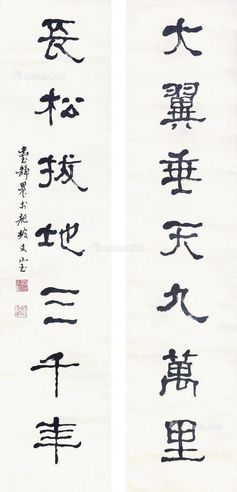 大翼垂天九萬里
長松拔地三千年
臺靜農龍坡丈室